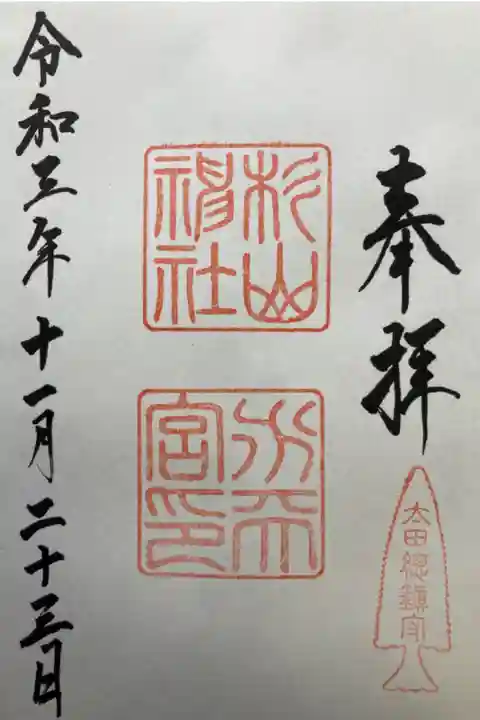 奉拝
太田総鎮守
杉山
神社
水天
宮印
令和三年十一月二十三日